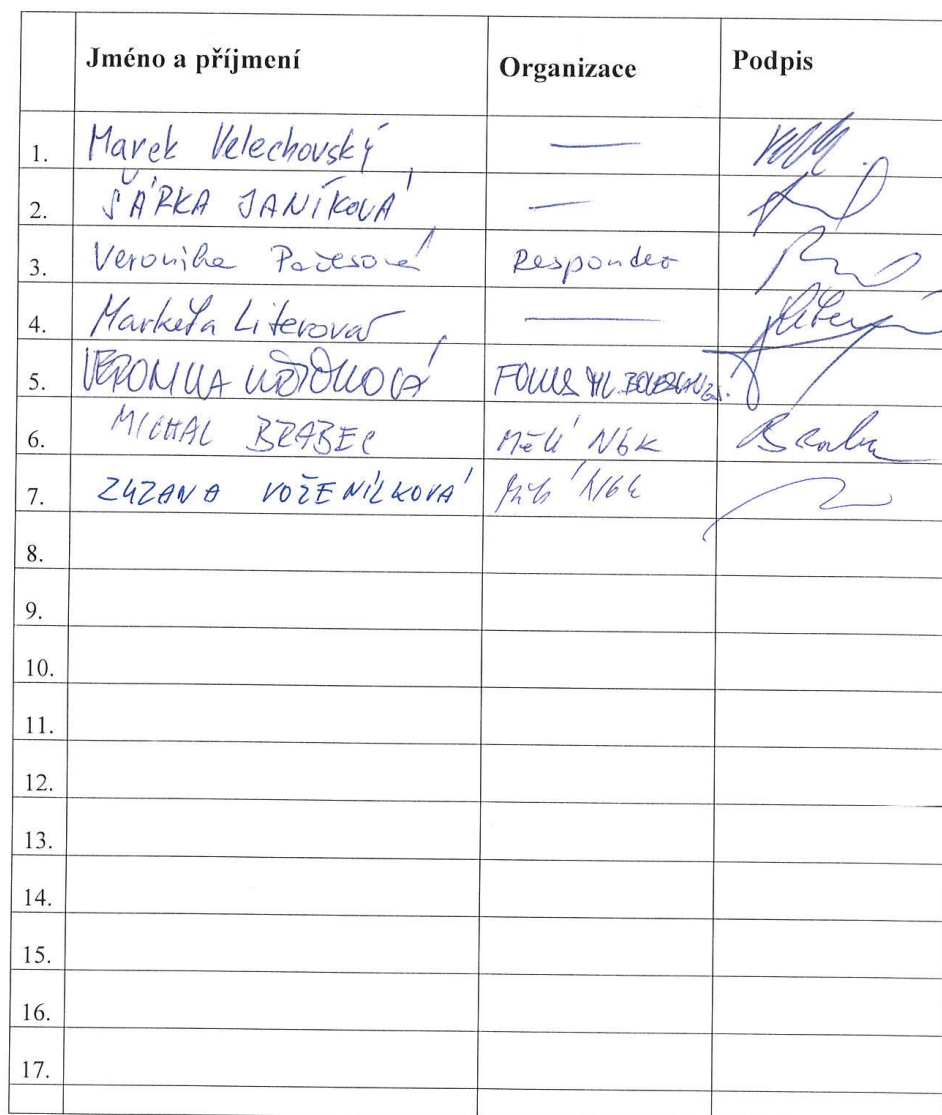 Jméno a příjmení Organizace Podpis
1. Marek Velechovský —
2. ŠÁRKA JANÍKOVÁ —
3. Veronika Respondeo
4. Markéta Literová —
5. VERONIKA FOKUS ML. BOLESLAV z.ú.
6. MICHAL BRABEC MěÚ NBK
7. ZUZANA VOŽENÍLKOVÁ MěÚ NBK
8.
9.
10.
11.
12.
13.
14.
15.
16.
17.